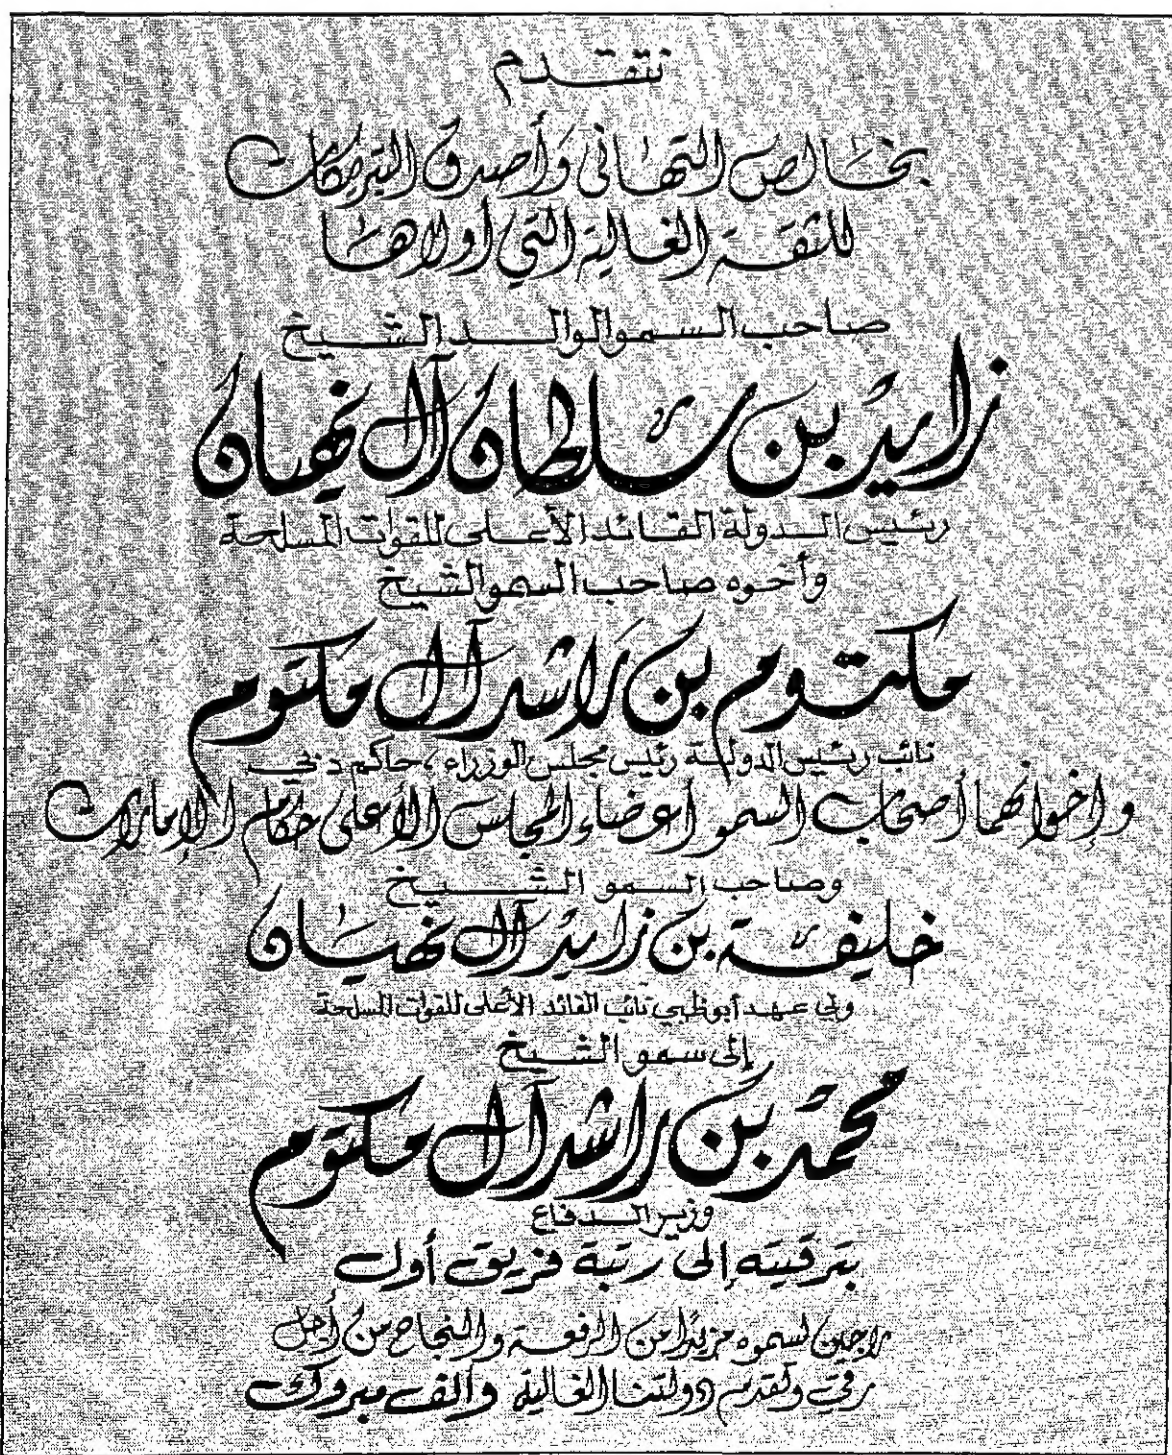 نتقدم
بخالص التهاني وأصدق التبريكات
للثقة الغالية التي أولاها
صاحب السمو الوالد الشيخ
زايد بن سلطان آل نهيان
رئيس الدولة القائد الأعلى للقوات المسلحة
وأخوه صاحب السمو الشيخ
مكتوم بن راشد آل مكتوم
نائب رئيس الدولة رئيس مجلس الوزراء، حاكم دبي
وإخوانهما أصحاب السمو أعضاء المجلس الأعلى حكام الإمارات
وصاحب السمو الشيخ
خليفة بن زايد آل نهيان
ولي عهد أبوظبي نائب القائد الأعلى للقوات المسلحة
إلى سمو الشيخ
محمد بن راشد آل مكتوم
وزير الدفاع
بترقيته إلى رتبة فريق أول
راجين لسموه مزيدا من الرفعة والنجاح من أجل
رقي وتقدم دولتنا الغالية وألف مبروك